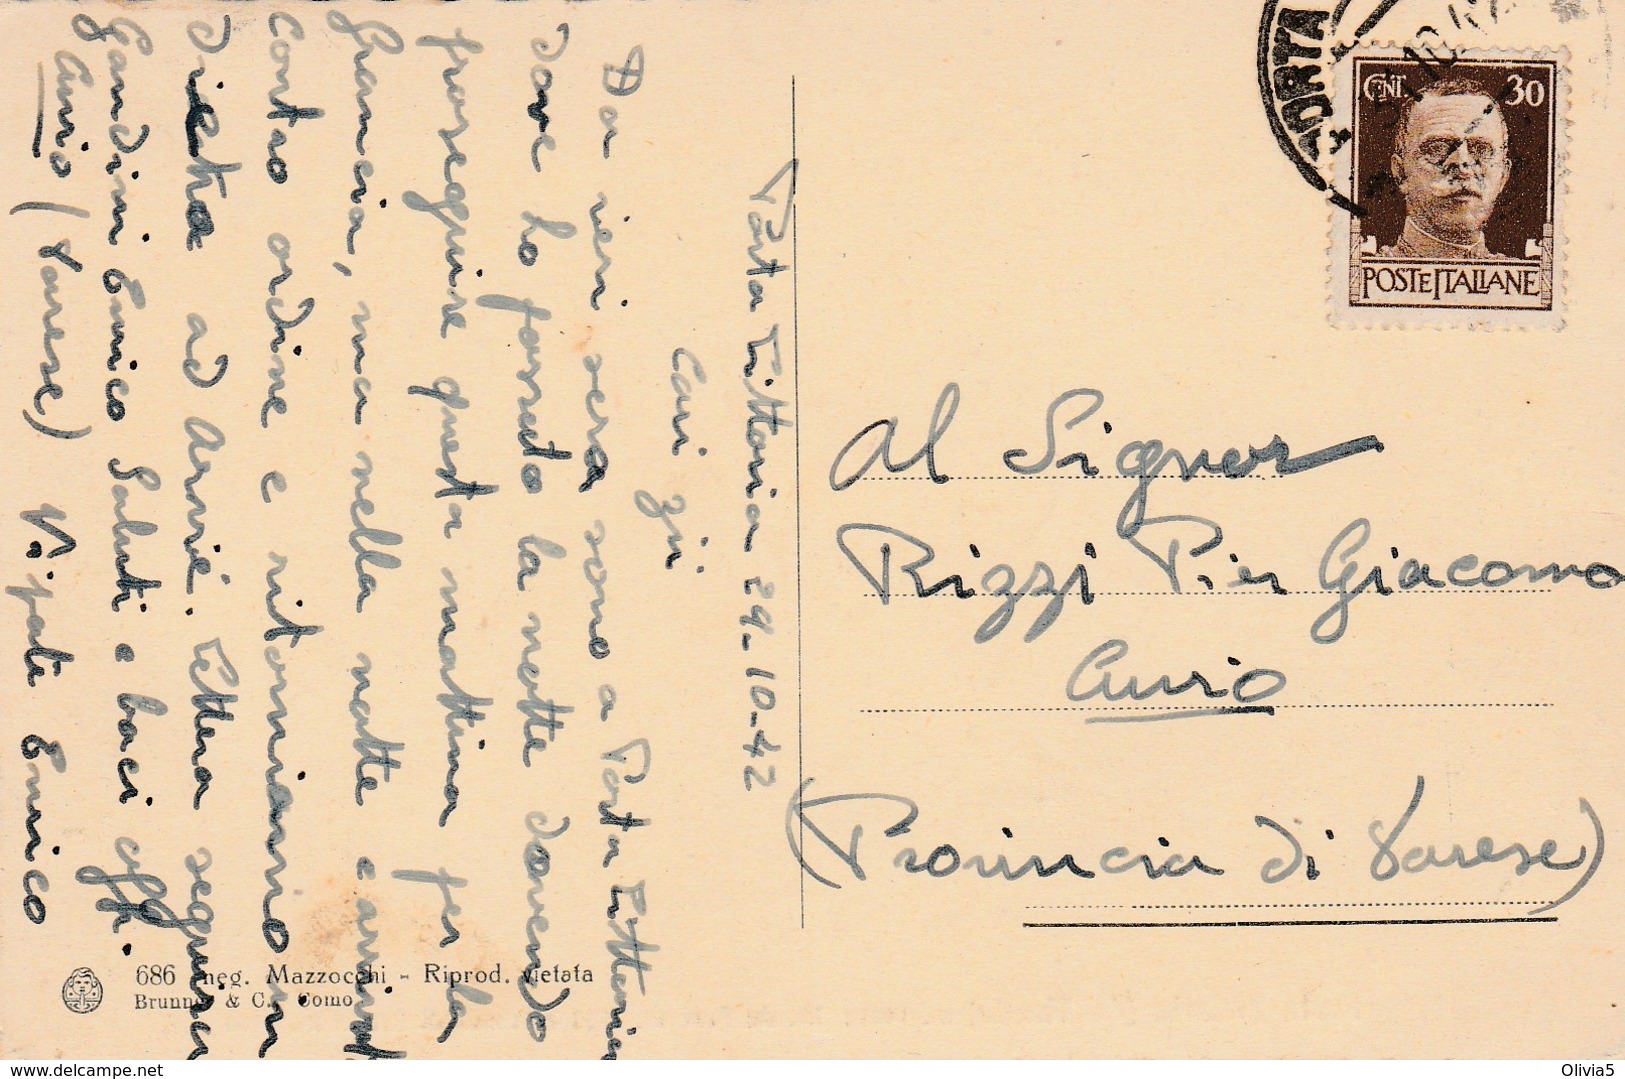 Porta Littoria 29-10-42
Cari zii
Da ieri sera sono a Porta Littoria
dove ho passato la notte dovendo
proseguire questa mattina per la
Francia, ma nella notte è arrivato
contro ordine e ritorniamo in
dietro ad Arvié. Lettera seguirà
Saluti e baci aff.
V. nipote Enrico
Gandini Enrico
Curio (Varese)
PORTA
10.42
CENT. 30
POSTE ITALIANE
Al Signor
Rizzi Pier Giacomo
Curio
(Provincia di Varese)
686 neg. Mazzocchi - Riprod. vietata
Brunner & C. Como
delcampe.net
Olivia5